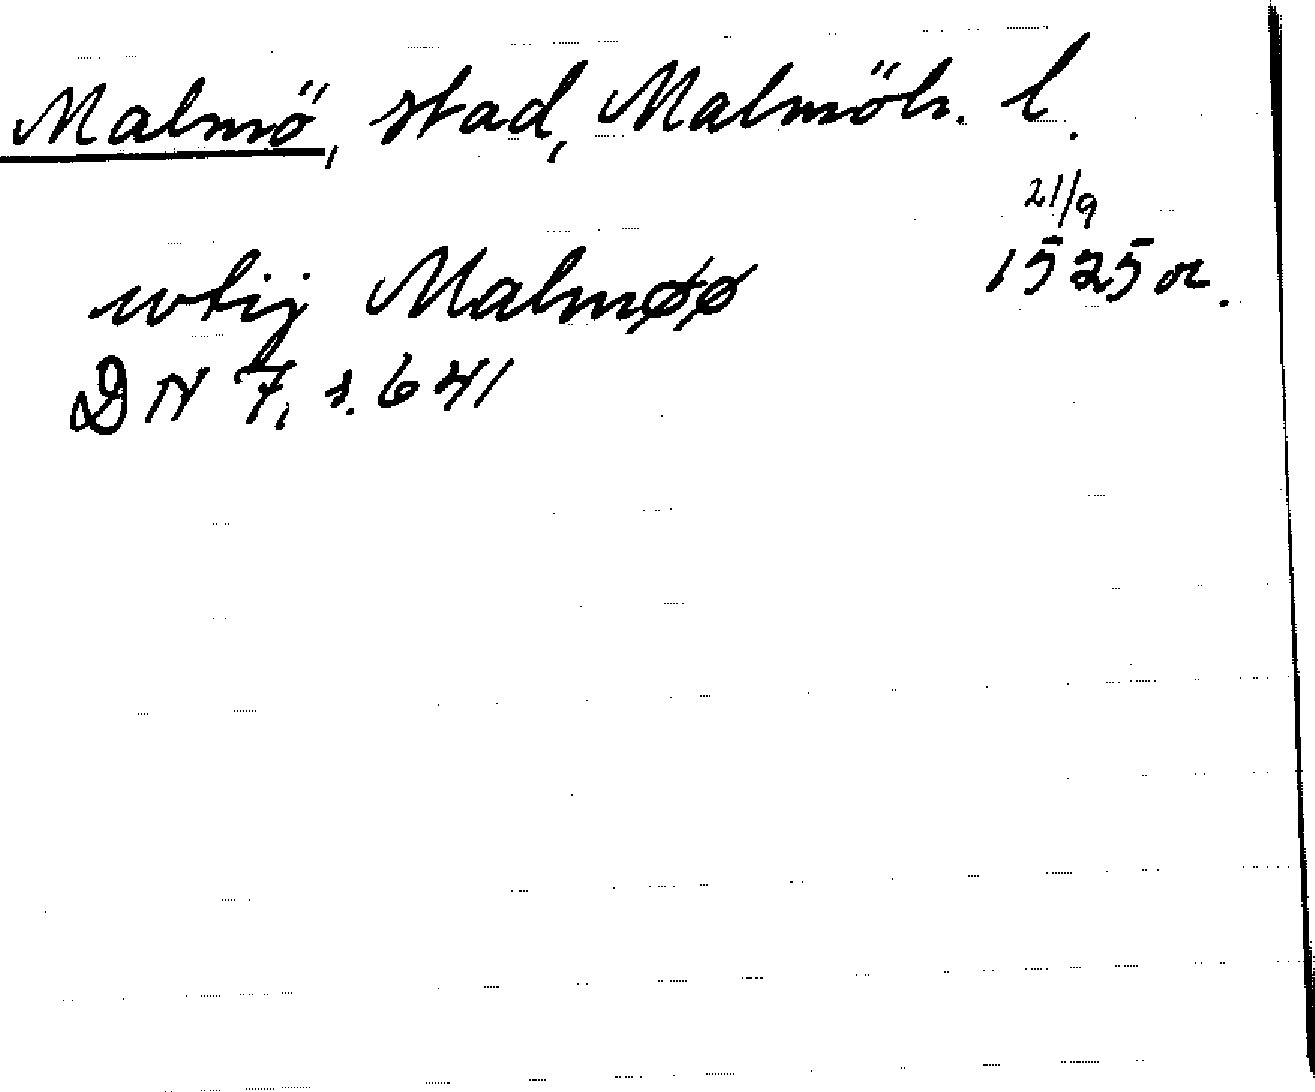 Malmö, stad, Malmöh. l.
21/9
wtij Malmøø 1525 or.
DN 7, s. 641